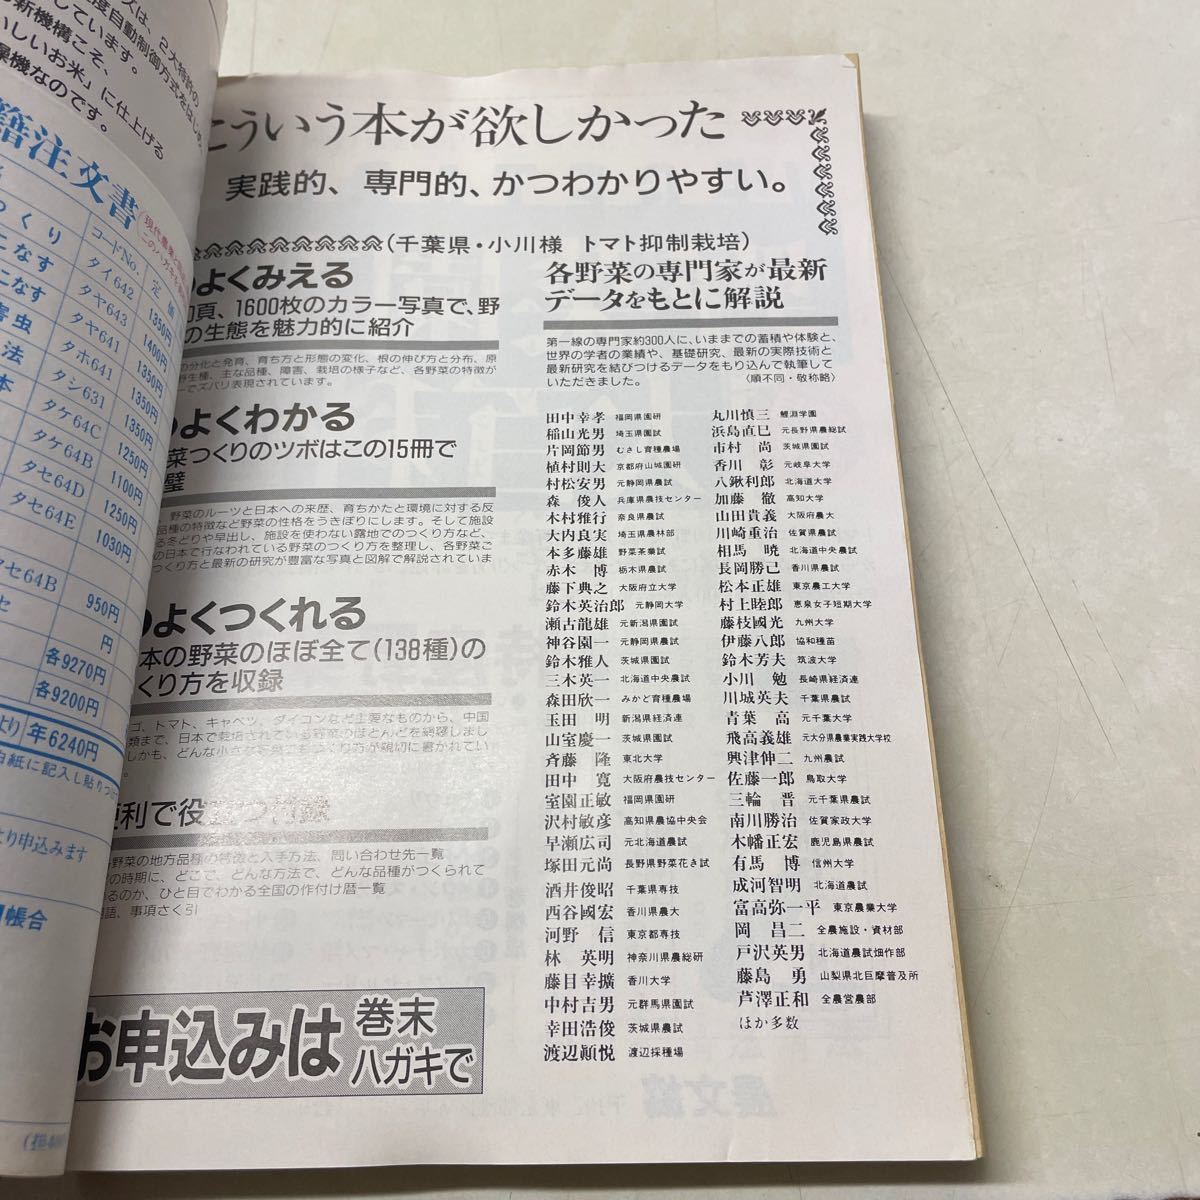 ズは、2大特許の
度自動制御方式をはじめ
しています。
新機構こそ、
いしいお米」に仕上げる
燥機なのです。
籍注文書
コードNo.
定価
タイ642
1350円
タヤ643
1400円
タヤ641
1350円
タホ641
1350円
タシ631
1350円
タケ64C
1250円
タケ64B
1100円
タセ64D
1250円
タセ64E
1030円
タセ64B
950円
円
各9270円
各9200円
年6240円
白紙に記入し貼りつ
より申込みます
帳合
こういう本が欲しかった
実践的、専門的、かつわかりやすい。
(千葉県・小川様 トマト抑制栽培)
よくみえる
頁、1600枚のカラー写真で、野
の生態を魅力的に紹介
の分化と発育、育ち方と形態の変化、根の伸び方と分布、原
野生種、主な品種、障害、栽培の様子など、各野菜の特徴が
ーでズバリ表現されています。
よくわかる
菜つくりのツボはこの15冊で
璧
野菜のルーツと日本への来歴、育ちかたと環境に対する反
品種の特徴など野菜の性格をうきぼりにします。そして施設
る冬どりや早出し、施設を使わない露地でのつくり方など、
の日本で行なわれている野菜のつくり方を整理し、各野菜ご
つくり方と最新の研究が豊富な写真と図解で解説されていま
よくつくれる
本の野菜のほぼ全て(138種)の
くり方を収録
ゴ、トマト、キャベツ、ダイコンなど主要なものから、中国
類まで、日本で栽培されている野菜のほとんどを網羅しまし
しかも、どんな小さな野菜でもつくり方が親切に書かれてい
便利で役立つ付録
野菜の地方品種の特徴と入手方法、問い合わせ先一覧
の時期に、どこで、どんな方法で、どんな品種がつくられて
るのか、ひと目でわかる全国の作付け暦一覧
語、事項さく引
お申込みは
巻末
ハガキで
各野菜の専門家が最新
データをもとに解説
第一線の専門家約300人に、いままでの蓄積や体験と、
世界の学者の業績や、基礎研究、最新の実際技術と
最新研究を結びつけるデータをもり込んで執筆して
いただきました。 (順不同・敬称略)
田中幸孝 福岡県園研
稲山光男 埼玉県園試
片岡節男 むさし育種農場
植村則大 京都府山城園研
村松安男 元静岡県農試
森 俊人 兵庫県農技センター
木村雅行 奈良県農試
大内良実 埼玉県農林部
本多藤雄 野菜茶業試
赤木 博 栃木県農試
藤下典之 大阪府立大学
鈴木英治郎 元静岡大学
瀬古龍雄 元新潟県園試
神谷園一 元静岡県農試
鈴木雅人 茨城県園試
三木英一 北海道中央農試
森田欣一 みかど育種農場
玉田 明 新潟県経済連
山室慶一 茨城県園試
斉藤 隆 東北大学
田中 寛 大阪府農技センター
室園正敏 福岡県園研
沢村敏彦 高知県農協中央会
早瀬広司 元北海道農試
塚田元尚 長野県野菜花き試
酒井俊昭 千葉県専技
西谷國宏 香川県農大
河野 信 東京都専技
林 英明 神奈川県農総研
藤目幸擴 香川大学
中村吉男 元群馬県園試
幸田浩俊 茨城県農試
渡辺穎悦 渡辺採種場
丸川慎三 鯉淵学園
浜島直巳 元長野県農総試
市村 尚 茨城県園試
香川 彰 元岐阜大学
八鍬利郎 北海道大学
加藤 徹 高知大学
山田貴義 大阪府農大
川崎重治 佐賀県農試
相馬 暁 北海道中央農試
長岡勝己 香川県農試
松本正雄 東京農工大学
村上睦郎 恵泉女子短期大学
藤枝國光 九州大学
伊藤八郎 協和種苗
鈴木芳夫 筑波大学
小川 勉 長崎県経済連
川城英夫 千葉県農試
青葉 高 元千葉大学
飛高義雄 元大分県農業実践大学校
興津伸二 九州農試
佐藤一郎 鳥取大学
三輪 晋 元千葉県農試
南川勝治 佐賀家政大学
木幡正宏 鹿児島県農試
有馬 博 信州大学
成河智明 北海道農試
富高弥一平 東京農業大学
岡 昌二 全農施設・資材部
戸沢英男 北海道農試畑作部
藤島 勇 山梨県北巨摩普及所
芦澤正和 全農営農部
ほか多数